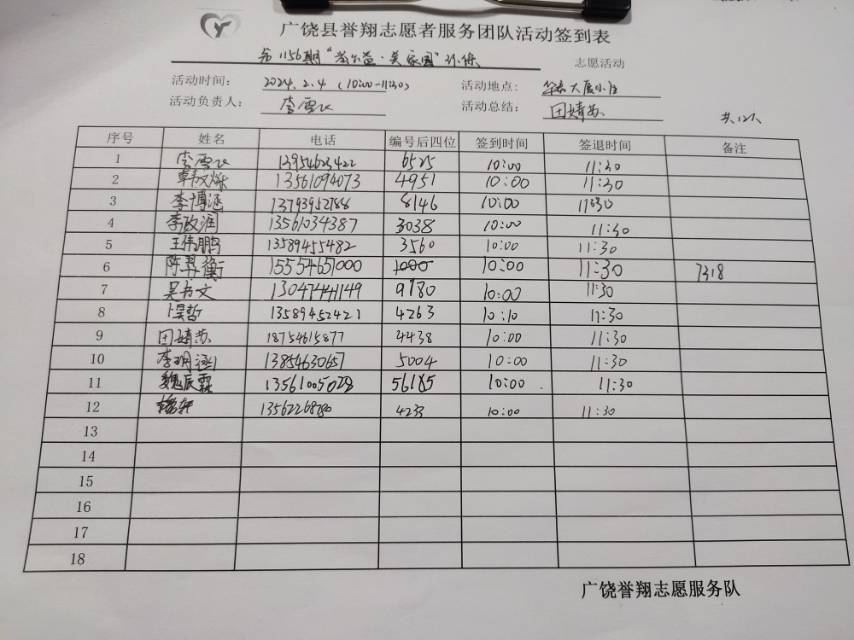 广饶县誉翔志愿者服务团队活动签到表
第1156期"益·美家园"环保 志愿活动
活动时间: 2024.2.4 (10:00-11:30) 活动地点: 大厦小区
活动负责人: 李雪 活动总结: 田婧苏
共12人
序号 姓名 电话 编号后四位 签到时间 签退时间 备注
1 李雪 13954623422 6525 10:00 11:30
2 韩文烁 13561094073 4951 10:00 11:30
3 李博涵 13793952788 8146 10:00 11:30
4 李政润 13561034387 3038 10:00 11:30
5 王伟鹏 13589455482 3560 10:00 11:30
6 陈羿衡 15554651000 1000 10:00 11:30 7318
7 吴书文 13047441149 9180 10:00 11:30
8 卜昊哲 13589452421 4263 10:10 11:30
9 田婧苏 18754615877 4438 10:00 11:30
10 李明涵 13854630657 5004 10:00 11:30
11 魏辰霖 13561005028 56185 10:00 11:30
12 13562268780 4233 10:00 11:30
13
14
15
16
17
18
广饶誉翔志愿服务队